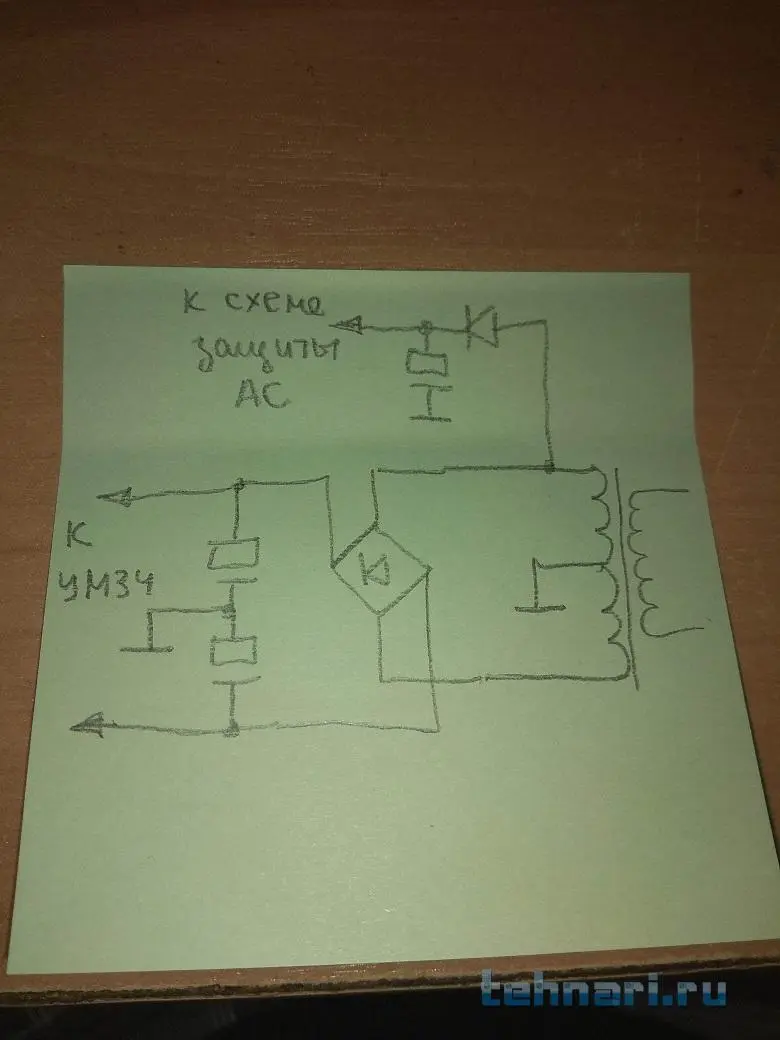 к схеме
защиты
АС
К
УМЗЧ
tehnari.ru